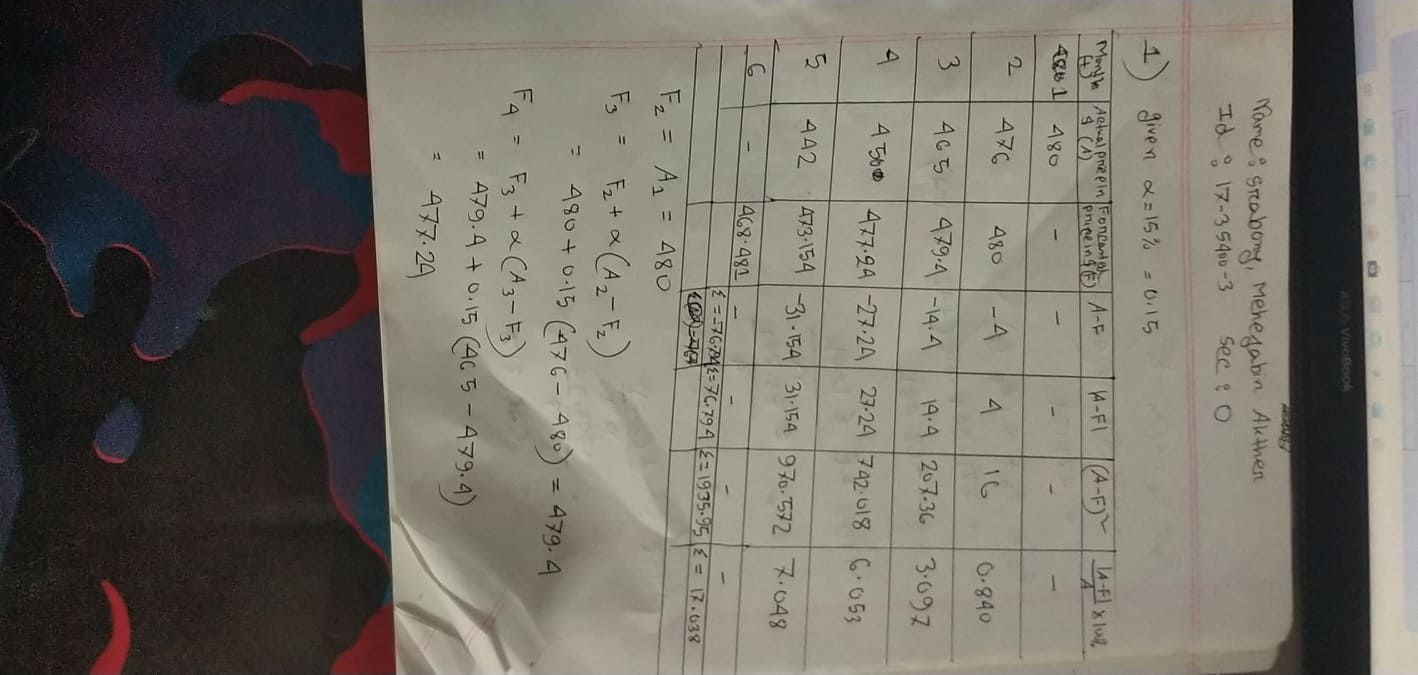 Name: Srabony, Mehejabin Akther
Id: 17-35400-3 sec: O
1) given α = 15% = 0.15
Month (t) Actual price in $ (A) Forecasted price in $ (F) A-F |A-F| (A-F)² |A-F|/A × 100
1 480 - - - - -
2 476 480 -4 4 16 0.840
3 465 479.4 -14.4 14.4 207.36 3.097
4 450 477.24 -27.24 27.24 742.018 6.053
5 442 473.154 -31.154 31.154 970.572 7.048
6 - 468.481 - - - -
Σ = -76.794 Σ = 76.794 Σ = 1935.95 Σ = 17.038
F₂ = A₁ = 480
F₃ = F₂ + α (A₂ - F₂)
= 480 + 0.15 (476 - 480) = 479.4
F₄ = F₃ + α (A₃ - F₃)
= 479.4 + 0.15 (465 - 479.4)
= 477.24
ASUS VivoBook